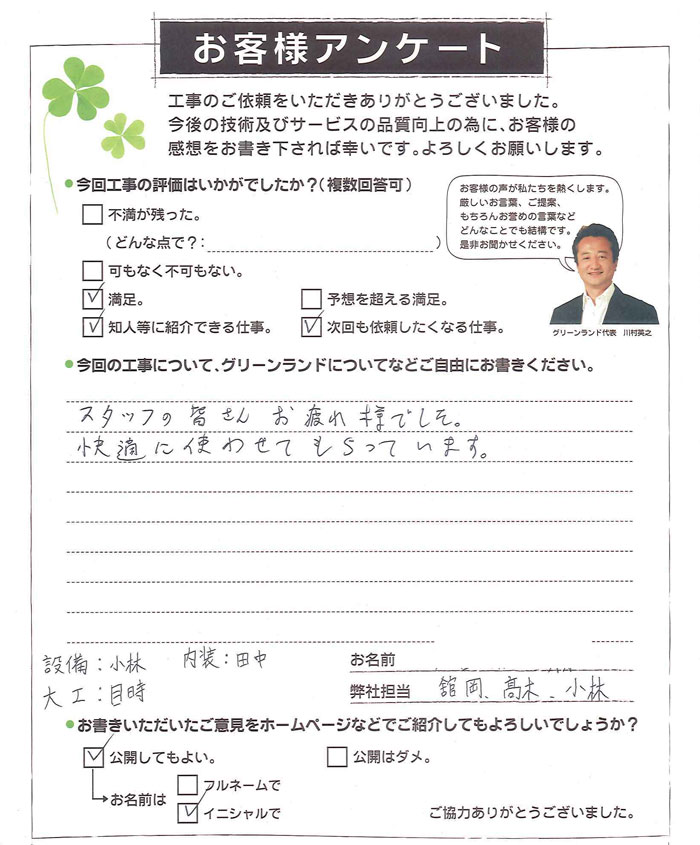 お客様アンケート
工事のご依頼をいただきありがとうございました。
今後の技術及びサービスの品質向上の為に、お客様の
感想をお書き下されば幸いです。よろしくお願いします。
●今回工事の評価はいかがでしたか?(複数回答可)
不満が残った。
(どんな点で?: )
可もなく不可もない。
満足。 予想を超える満足。
知人等に紹介できる仕事。 次回も依頼したくなる仕事。
お客様の声が私たちを熱くします。
厳しいお言葉、ご提案、
もちろんお誉めの言葉など
どんなことでも結構です。
是非お聞かせください。
グリーンランド代表 川村英之
●今回の工事について、グリーンランドについてなどご自由にお書きください。
スタッフの皆さん お疲れ様でした。
快適に使わせてもらっています。
設備:小林 内装:田中
大工:目時
お名前
弊社担当 舘岡、高木、小林
●お書きいただいたご意見をホームページなどでご紹介してもよろしいでしょうか?
公開してもよい。 公開はダメ。
お名前は フルネームで
イニシャルで
ご協力ありがとうございました。